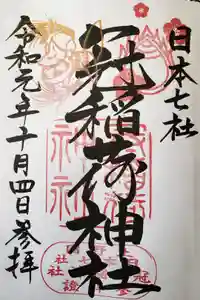 日本七社
冠稲荷神社
令和元年十月四日参拝